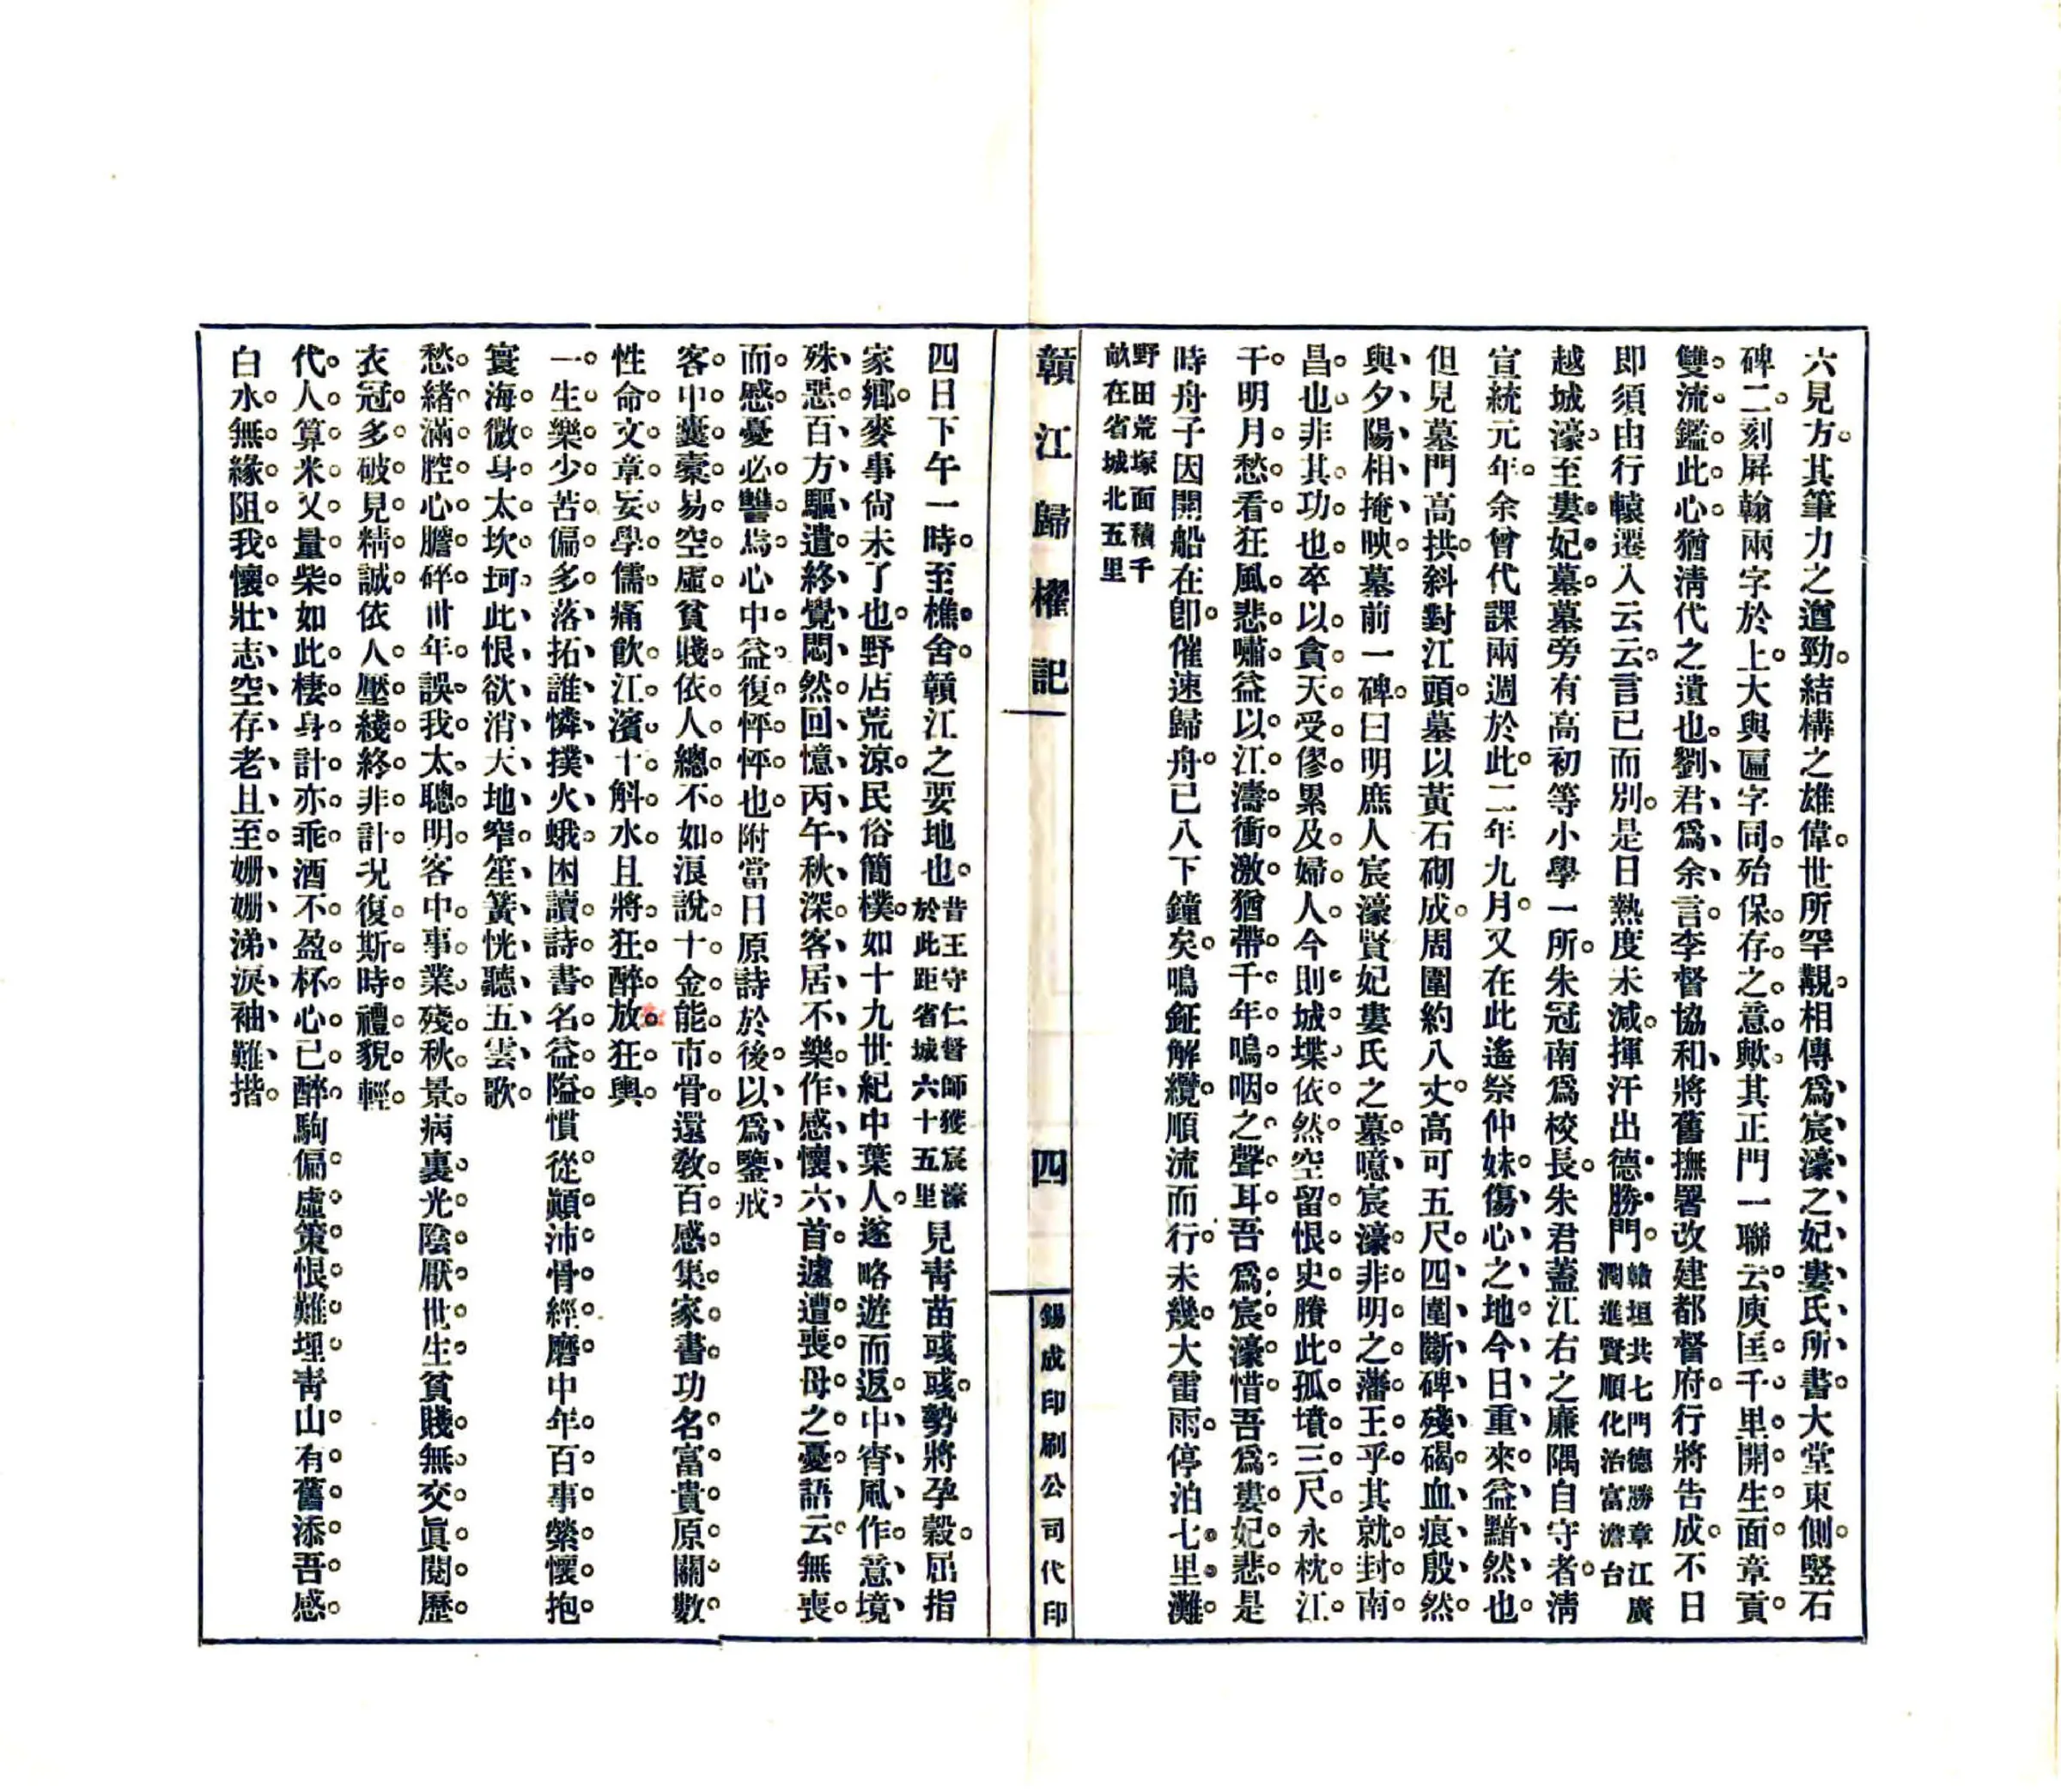 六見方其筆力之遒勁結構之雄偉世所罕覯相傳爲宸濠之妃婁氏所書大堂東側竪石
碑二刻屏翰兩字於上大與匾字同殆保存之意歟其正門一聯云庾匡千里開生面章貢
雙流鑑此心猶淸代之遺也劉君爲余言李督協和將舊撫署改建都督府行將告成不日
即須由行轅遷入云云言已而別是日熱度未減揮汗出德勝門贛垣共七門德勝章江廣潤進賢順化治富澹台
越城濠至婁妃墓墓旁有高初等小學一所朱冠南爲校長朱君蓋江右之廉隅自守者淸
宣統元年余曾代課兩週於此二年九月又在此遙祭仲妹傷心之地今日重來益黯然也
但見墓門高拱斜對江頭墓以黃石砌成周圍約八丈高可五尺四圍斷碑殘碣血痕殷然
與夕陽相掩映墓前一碑曰明庶人宸濠賢妃婁氏之墓噫宸濠非明之藩王乎其就封南
昌也非其功也卒以貪天受僇累及婦人今則城堞依然空留恨史賸此孤墳三尺永枕江
干明月愁看狂風悲嘯益以江濤衝激猶帶千年嗚咽之聲耳吾爲宸濠惜吾爲婁妃悲是
時舟子因開船在卽催速歸舟已八下鐘矣鳴鉦解纜順流而行未幾大雷雨停泊七里灘
野田荒塚面積千畝在省城北五里
贛江歸櫂記
四
錫成印刷公司代印
四日下午一時至樵舍贛江之要地也昔王守仁督師獲宸濠於此距省城六十五里見靑苗彧彧勢將孕穀屈指
家鄉麥事尙未了也野店荒涼民俗簡樸如十九世紀中葉人遂略遊而返中宵風作意境
殊惡百方驅遣終覺悶然回憶丙午秋深客居不樂作感懷六首遽遭喪母之憂語云無喪
而感憂必讐焉心中益復怦怦也附當日原詩於後以爲鑒戒
客中囊橐易空虛貧賤依人總不如浪說十金能市骨還敎百感集家書功名富貴原關數
性命文章妄學儒痛飮江濱十斛水且將狂醉放狂輿
一生樂少苦偏多落拓誰憐撲火蛾困讀詩書名益隘慣從顚沛骨經磨中年百事縈懷抱
寰海微身太坎坷此恨欲消天地窄笙簧恍聽五雲歌
愁緒滿腔心膽碎卅年誤我太聰明客中事業殘秋景病裏光陰厭世生貧賤無交眞閱歷
衣冠多破見精誠依人壓綫終非計况復斯時禮貌輕
代人算米又量柴如此棲身計亦乖酒不盈杯心已醉駒偏虛策恨難埋靑山有舊添吾感
白水無緣阻我懷壯志空存老且至姍姍涕淚袖難揩